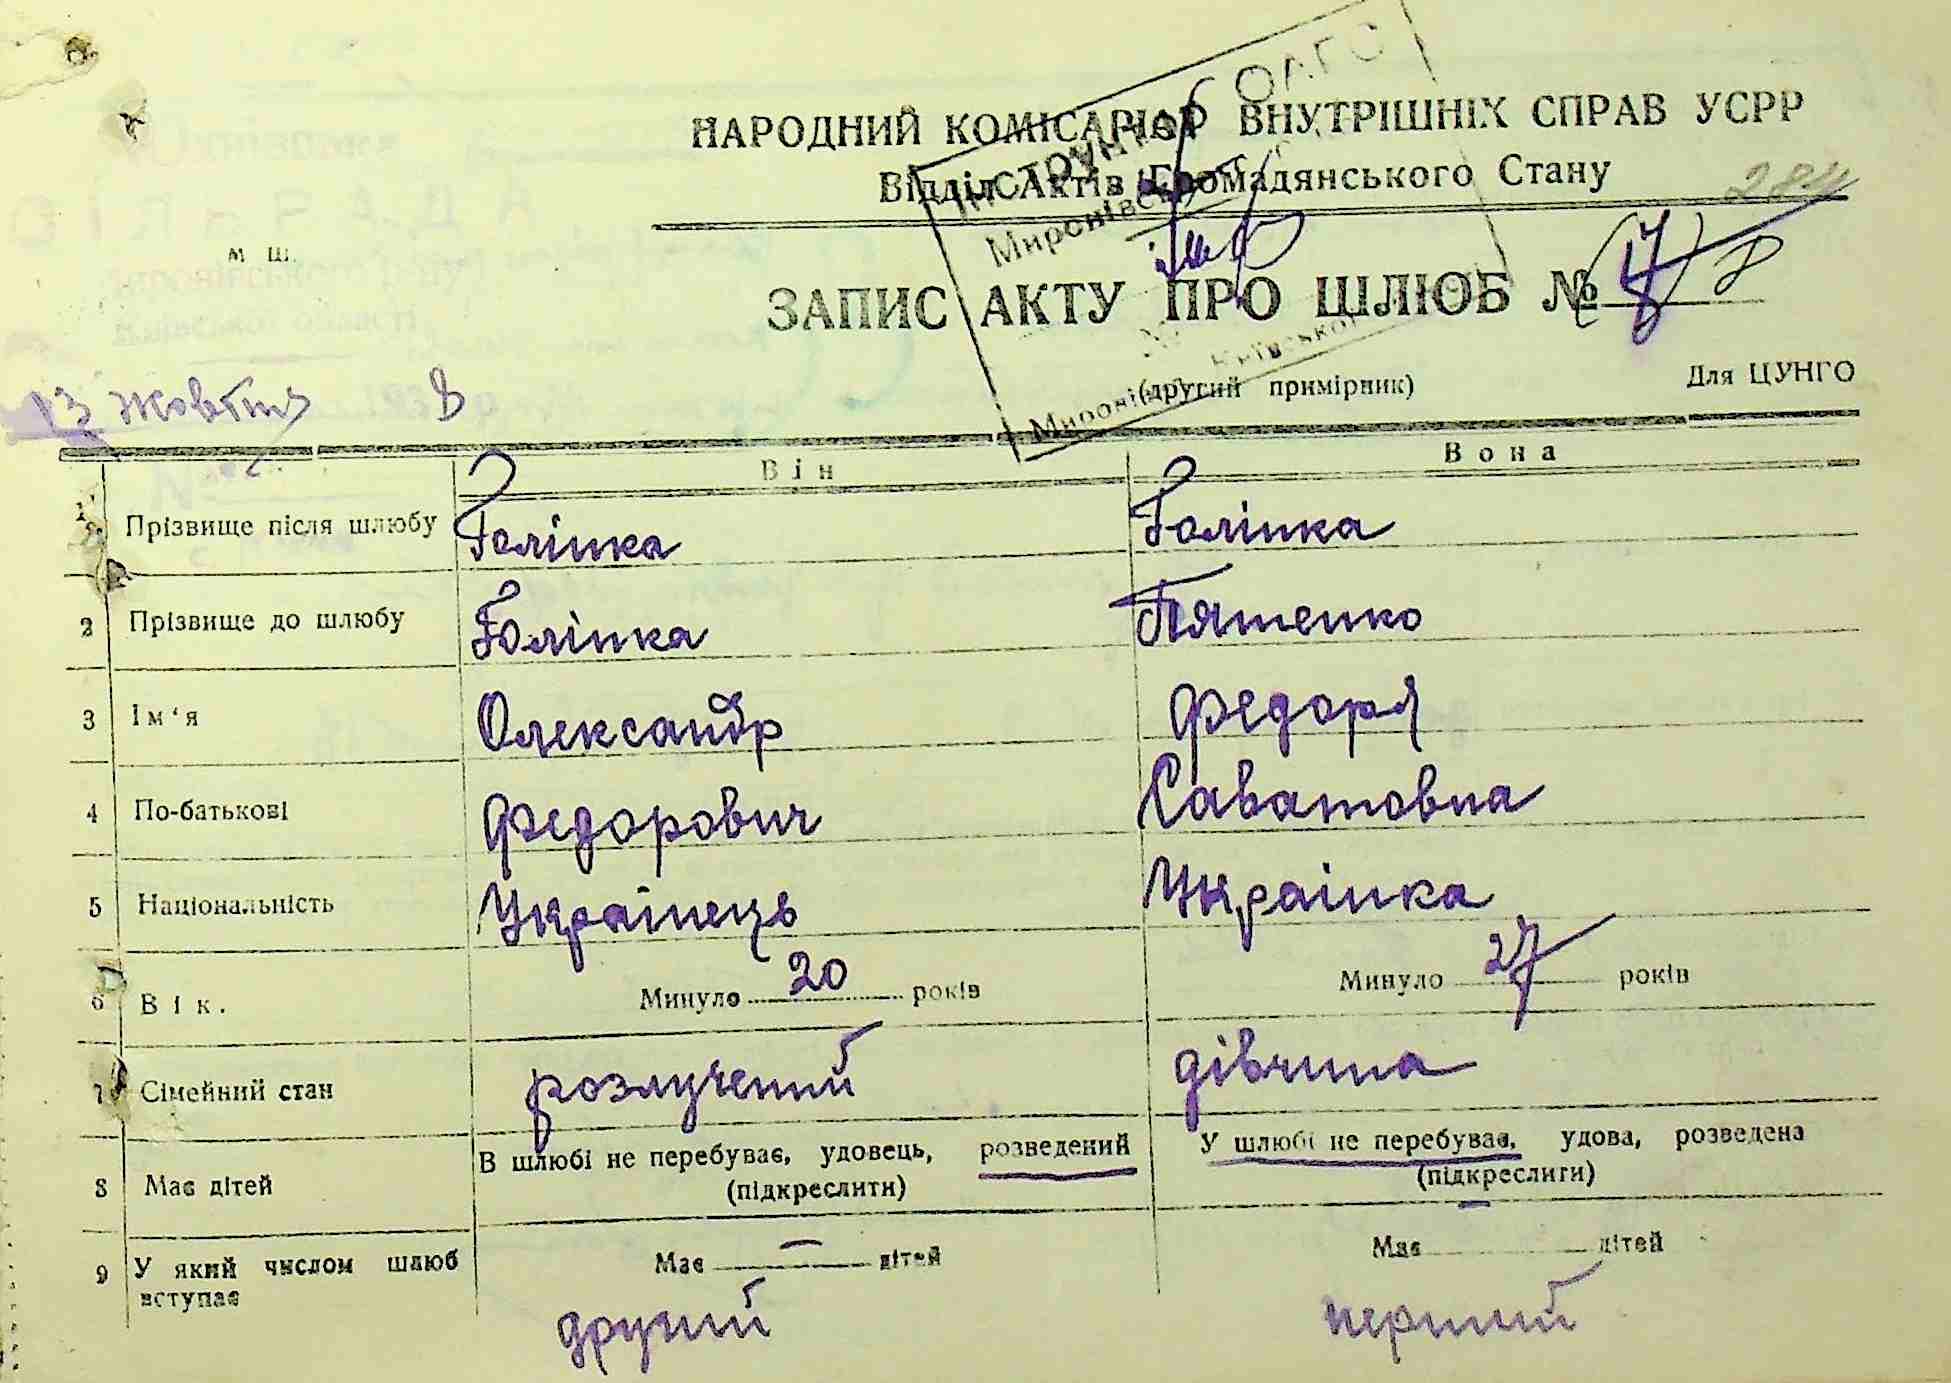 НАРОДНИЙ КОМІСАРІАТ ВНУТРІШНІХ СПРАВ УСРР
Відділ Актів Громадянського Стану
284
м ш.
ЗАПИС АКТУ ПРО ШЛЮБ № (7) 8
(другий примірник) Для ЦУНГО
13 жовтня 8
Він Вона
1 Прізвище після шлюбу Голінка Голінка
2 Прізвище до шлюбу Голінка Пятенко
3 Ім'я Олександр Федоря
4 По-батькові Федорович Саватовна
5 Національність Українець Українка
6 Вік. Минуло 20 років Минуло 27 років
7 Сімейний стан розлучений дівчина
В шлюбі не перебуває, удовець, розведений У шлюбі не перебуває, удова, розведена
8 Має дітей (підкреслити) (підкреслити)
9 У який числом шлюб Має — дітей Має — дітей
вступає
другий перший